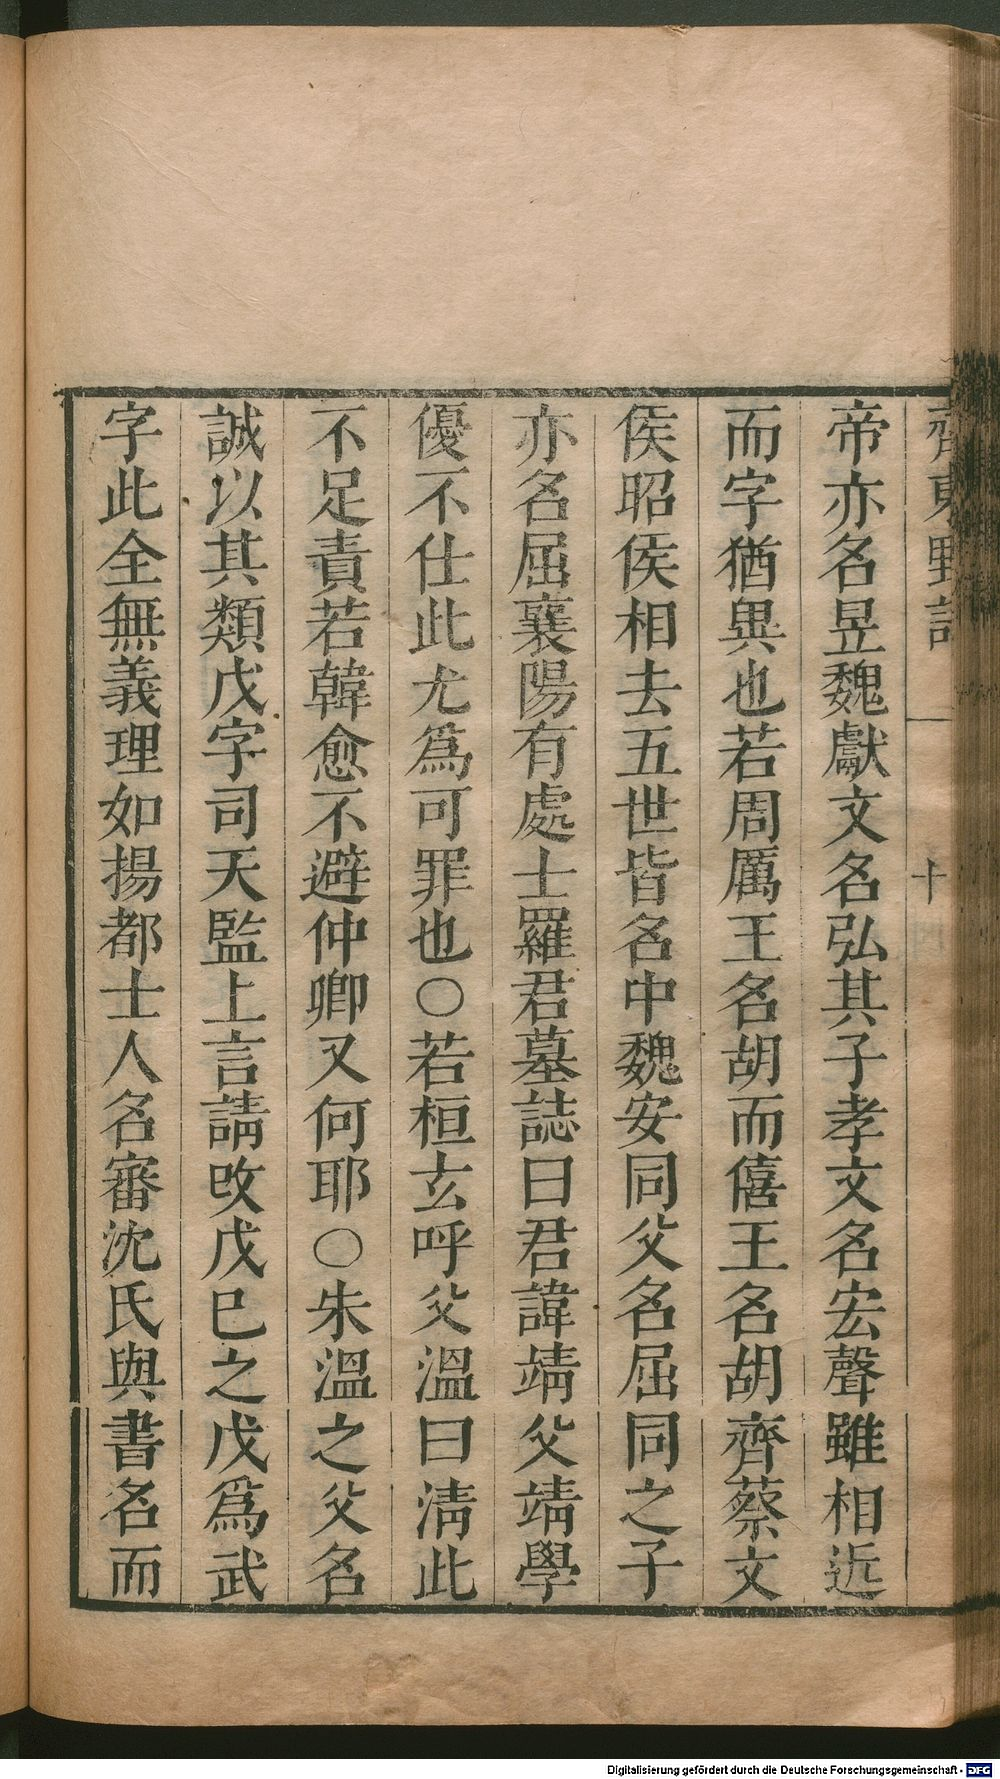 齊東野語
十
帝亦名昱魏獻文名弘其子孝文名宏聲雖相近
而字猶異也若周厲王名胡而僖王名胡齊蔡文
侯昭侯相去五世皆名中魏安同父名屈同之子
亦名屈襄陽有處士羅君墓誌曰君諱靖父靖學
優不仕此尤爲可罪也○若桓玄呼父溫曰淸此
不足責若韓愈不避仲卿又何耶○朱溫之父名
誠以其類戊字司天監上言請改戊巳之戊爲武
字此全無義理如揚都士人名審沈氏與書名而
Digitalisierung gefördert durch die Deutsche Forschungsgemeinschaft - DFG